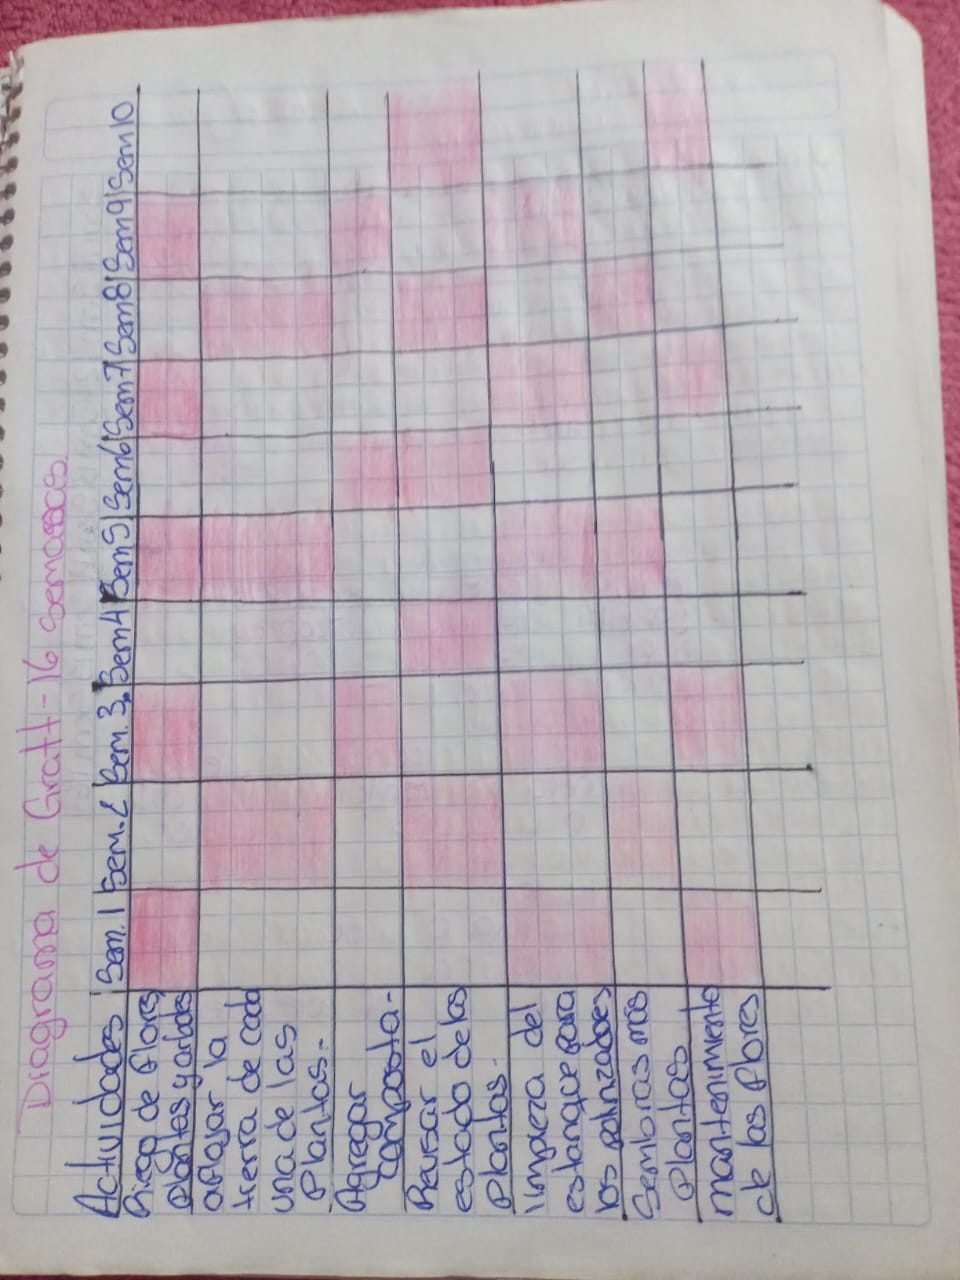 Diagrama de Gratt-16 semanas
Actividades Sem. 1 Sem. 2 Sem. 3 Sem 4 Sem 5 Sem 6 Sem 7 Sem 8 Sem 9 Sem 10
Riego de flores
plantas y arboles
aflojar la
tierra de cada
una de las
Plantas.
Agregar
composta.
Revisar el
estado de las
plantas.
limpieza del
estanque para
los polinizadores
Sembras más
Plantas
mantenimiento
de las flores